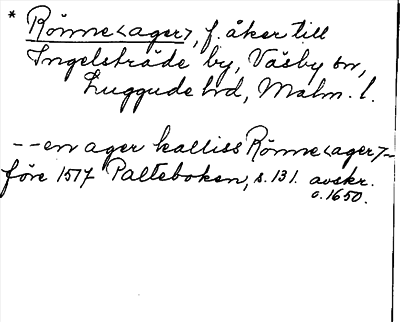 * Rönne<ager>, f. åker till
Ingelsträde by, Väsby sn,
Luggude hd, Malm. l.
-- en ager kalliss Rönne<ager> --
före 1517 Palteboken, s. 131. avskr.
c. 1650.